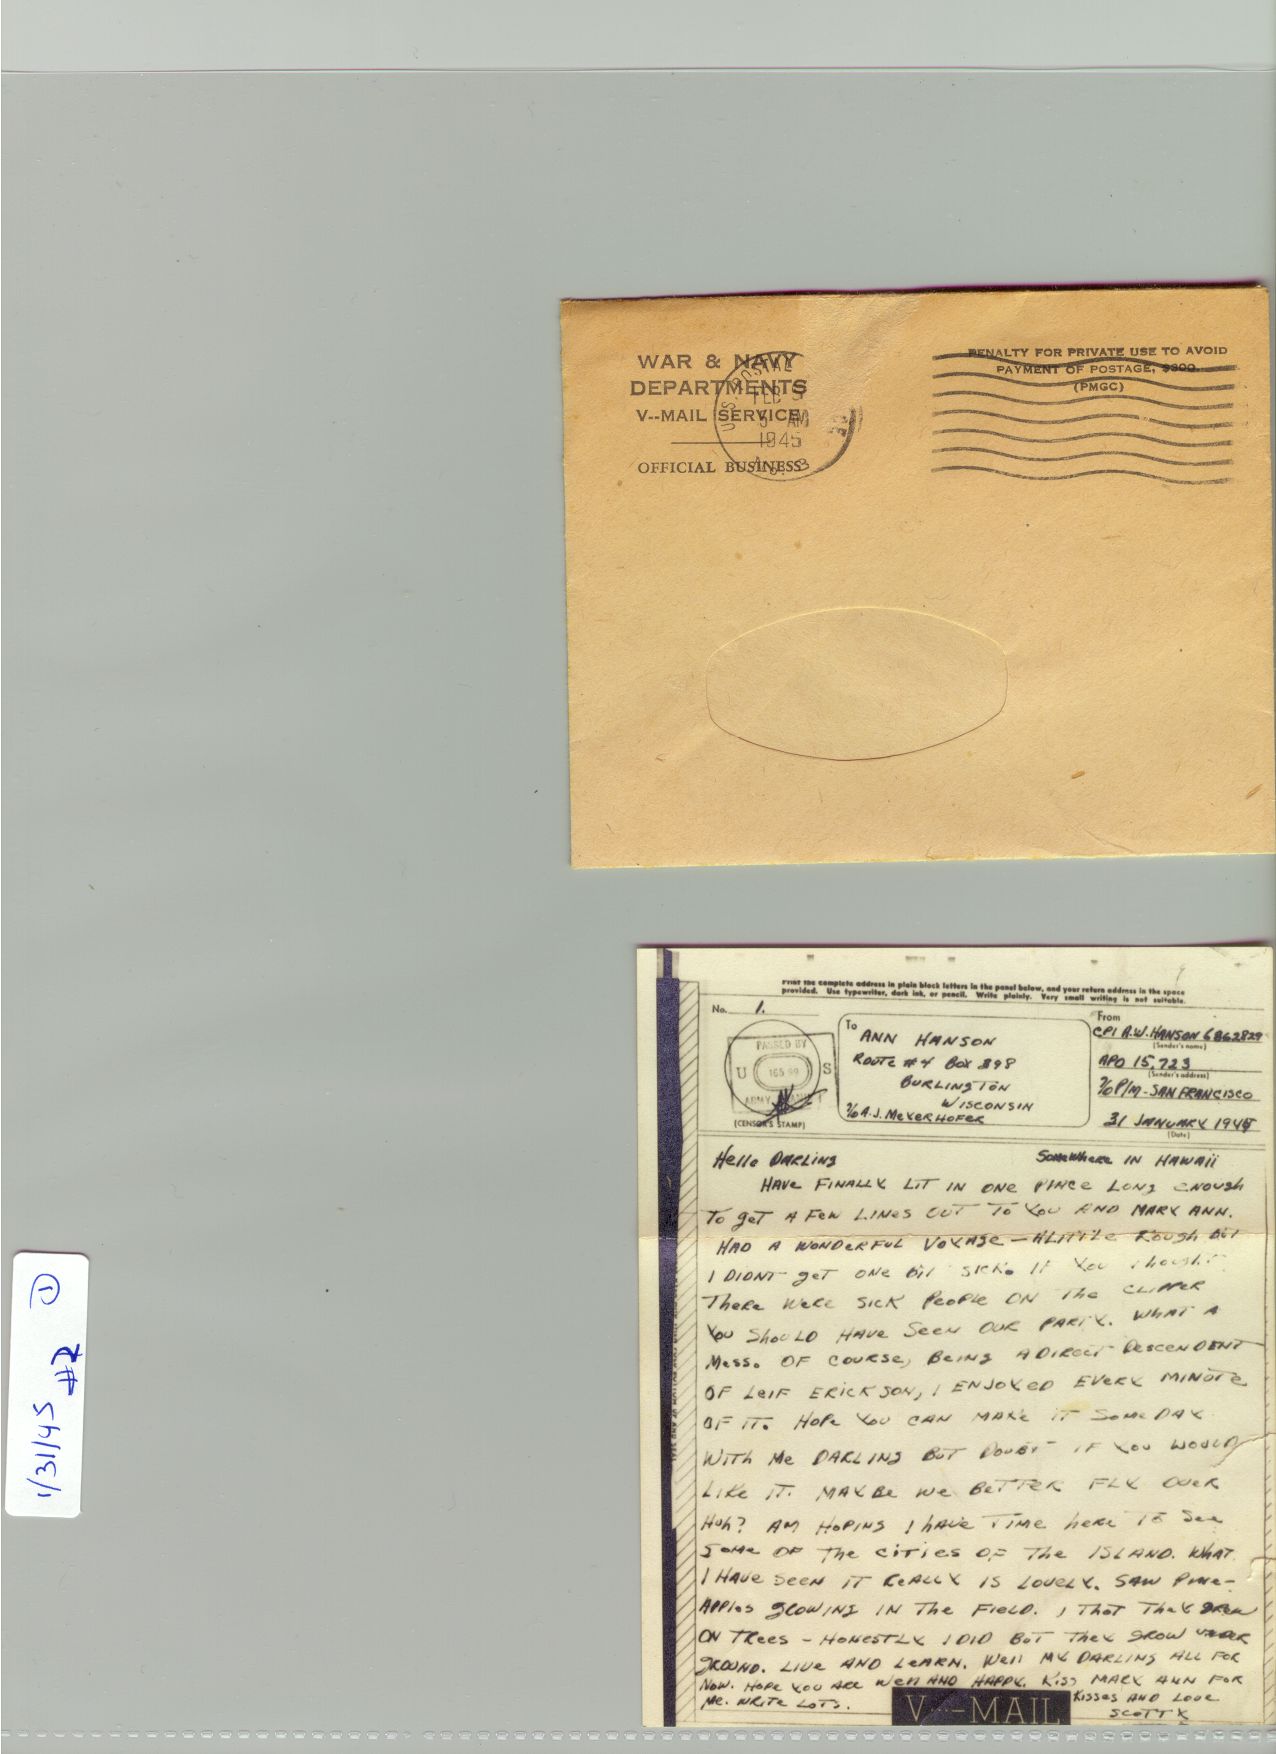 WAR & NAVY
DEPARTMENTS
V--MAIL SERVICE
OFFICIAL BUSINESS
U.S. POSTAL
FEB 5
5 AM
1945
No. 3
PENALTY FOR PRIVATE USE TO AVOID
PAYMENT OF POSTAGE, $300.
(PMGC)
Print the complete address in plain block letters in the panel below, and your return address in the space
provided. Use typewriter, dark ink, or pencil. Write plainly. Very small writing is not suitable.
No. 1.
PASSED BY
U S
16599
ARMY
(CENSOR'S STAMP)
To
ANN HANSON
ROUTE #4 BOX 398
BURLINGTON
WISCONSIN
℅ A.J. MEYERHOFER
From
CPl A.W. HANSON 6862829
(Sender's name)
APO 15,723
(Sender's address)
℅ P/M - SAN FRANCISCO
31 JANUARY 1945
(Date)
Hello DARLING
Somewhere IN HAWAII
HAVE FINALLY LIT IN ONE PLACE LONG ENOUGH
TO GET A FEW LINES OUT TO YOU AND MARY ANN.
HAD A WONDERFUL VOYAGE - A LITTLE ROUGH BUT
I DIDNT GET ONE BIT SICK. IF YOU THOUGHT
THERE WERE SICK PEOPLE ON THE CLIPPER
YOU SHOULD HAVE SEEN OUR PARTY. WHAT A
MESS. OF COURSE, BEING A DIRECT DESCENDENT
OF LEIF ERICKSON, I ENJOYED EVERY MINUTE
OF IT. HOPE YOU CAN MAKE IT SOMEDAY
WITH ME DARLING BUT DOUBT IF YOU WOULD
LIKE IT. MAYBE WE BETTER FLY OVER
HUH? AM HOPING I HAVE TIME HERE TO SEE
SOME OF THE CITIES OF THE ISLAND. WHAT
I HAVE SEEN IT REALLY IS LOVELY. SAW PINE-
APPLES GROWING IN THE FIELD. I THOT THEY GREW
ON TREES - HONESTLY I DID BUT THEY GROW UNDER
GROUND. LIVE AND LEARN. WELL MY DARLING ALL FOR
NOW. HOPE YOU ARE WELL AND HAPPY. KISS MARY ANN FOR
ME. WRITE LOTS.
KISSES AND LOVE
SCOTTY
V···—MAIL
1/31/45 #2 ①